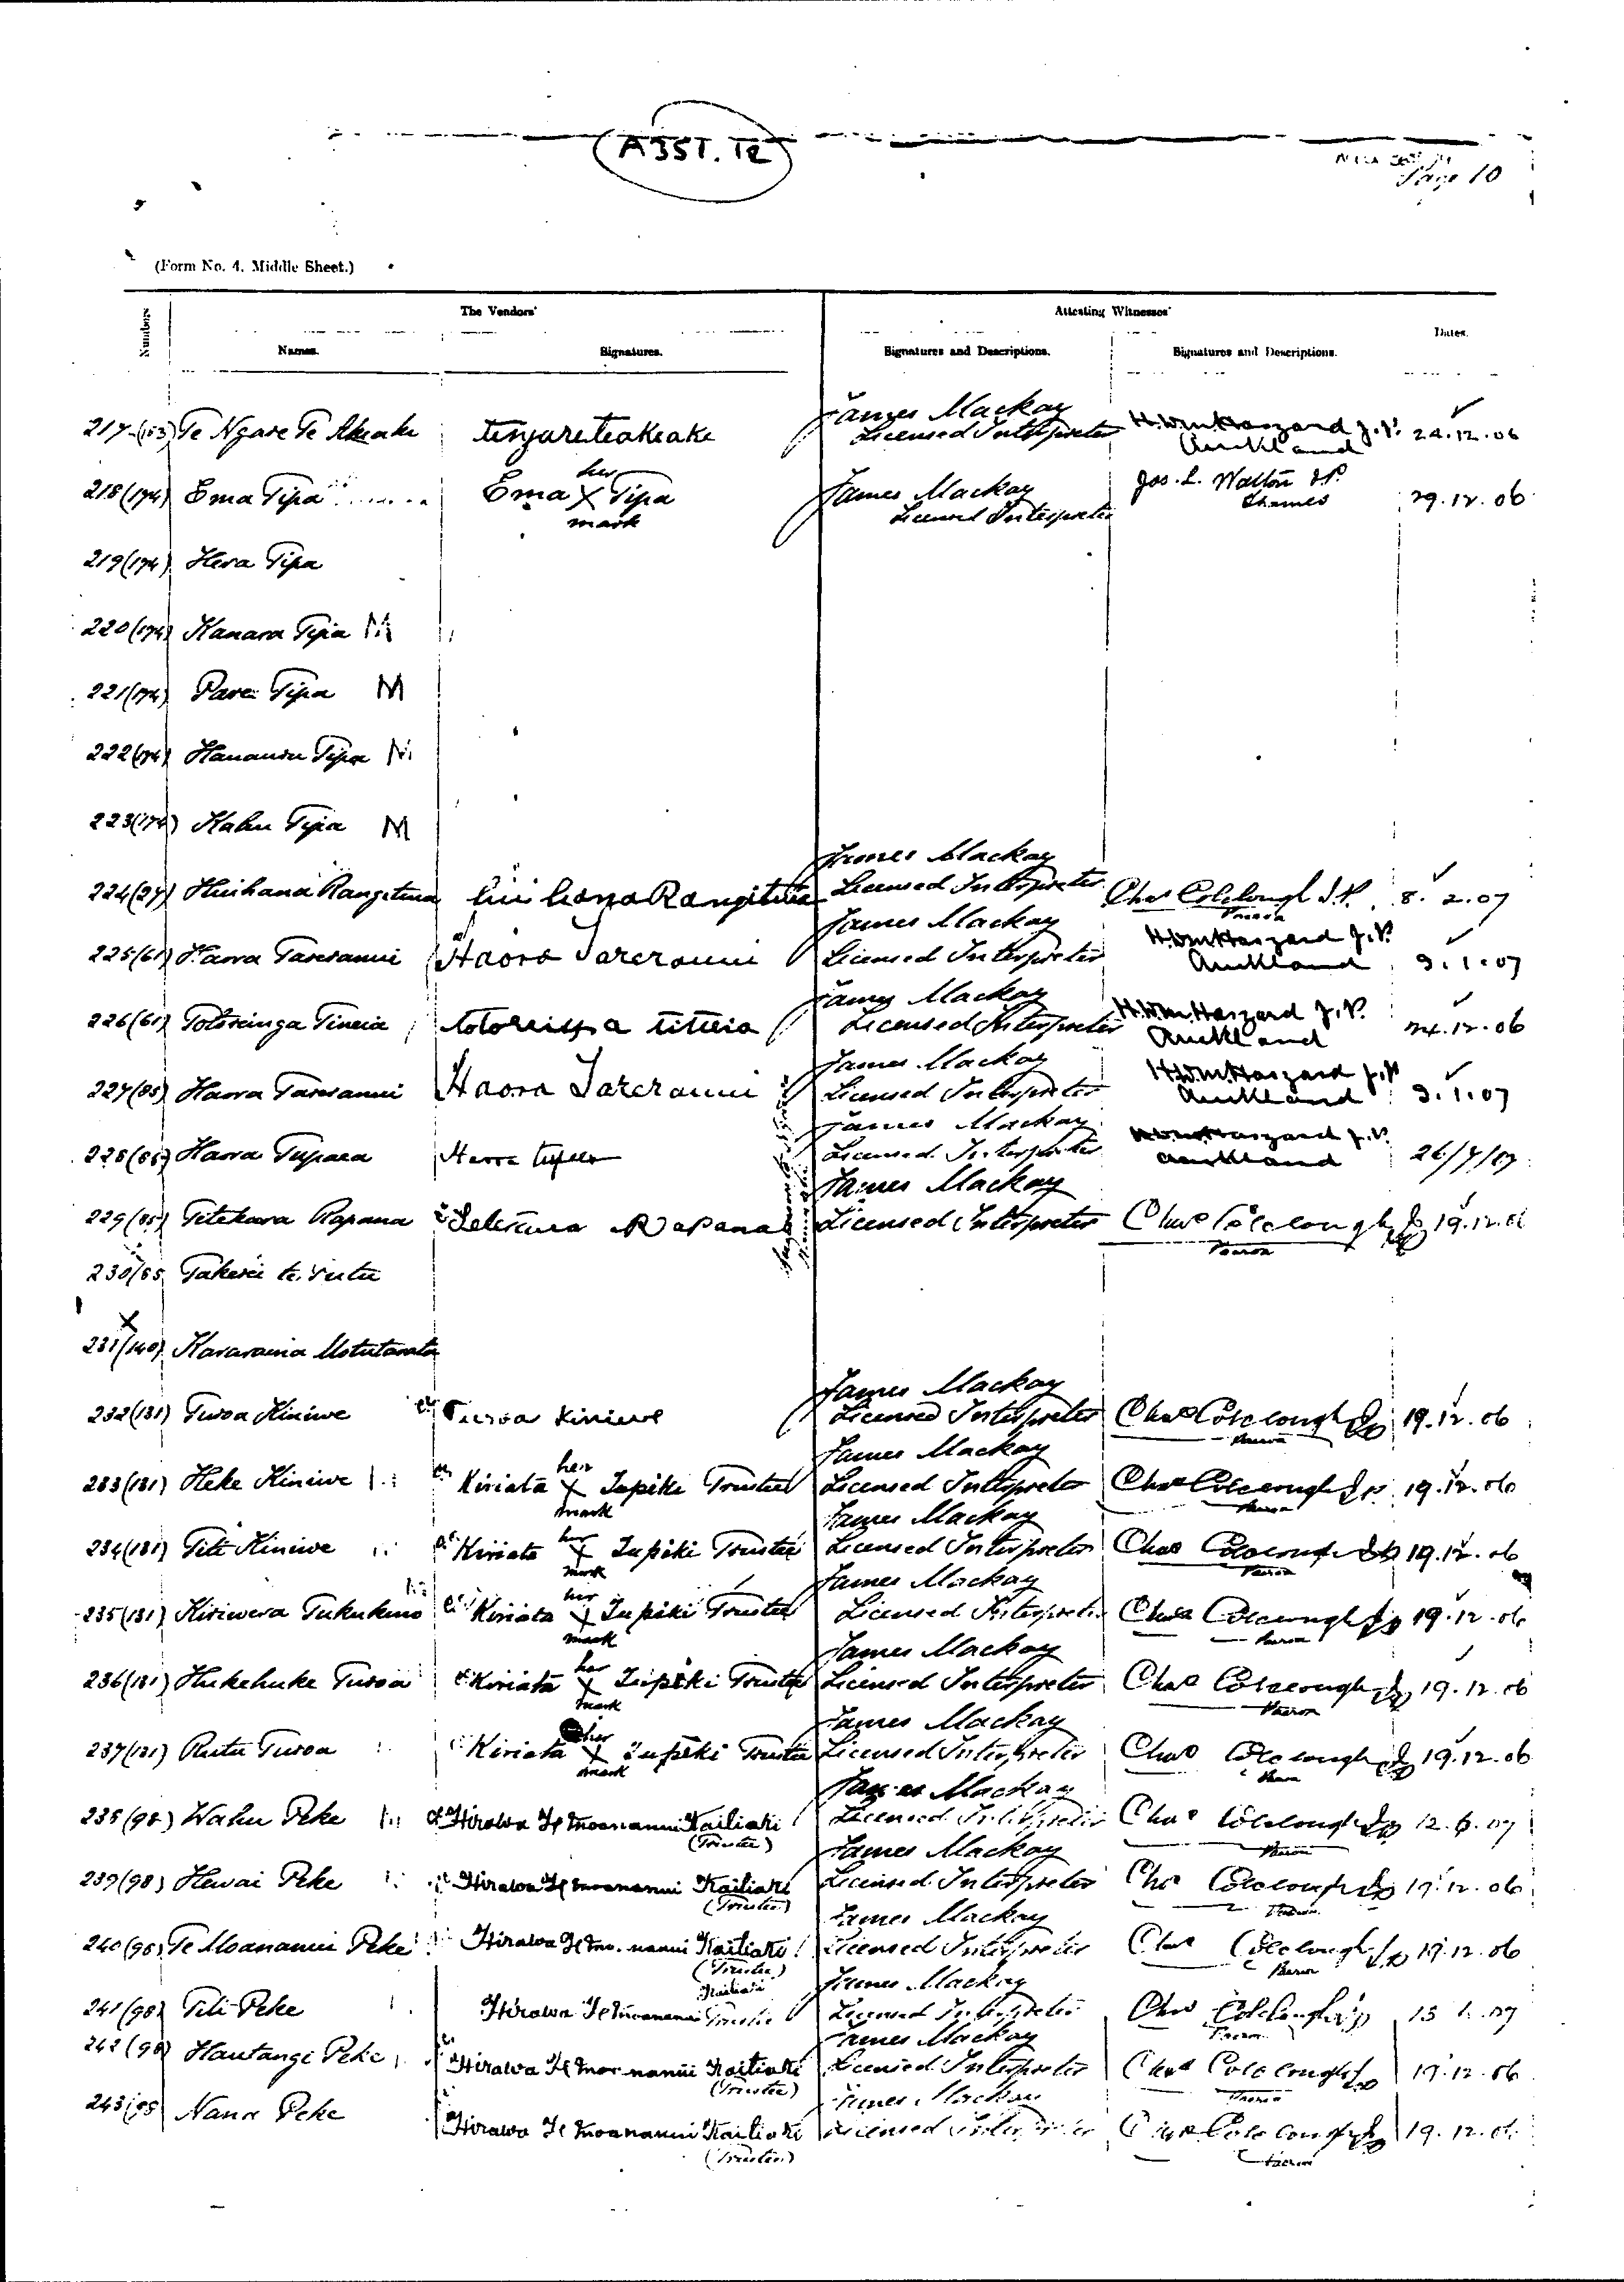 ASST. TR
Page 10
(Form No. 4. Middle Sheet.)
Numbers
The Vendors'
Attesting Witnesses'
Names.
Signatures.
Signatures and Descriptions.
Signatures and Descriptions.
Dates.
217 (153) Te Ngare Te Akeake tengareteakeake James Mackay Licensed Interpreter H.Wm Haszard J.P. Auckland 24.12.06
218 (174) Ema Tipa Ema her X mark Tipa James Mackay Licensed Interpreter Jos. L. Walton J.P. Thames 29.12.06
219 (174) Hera Tipa
220 (174) Kanara Tipa M
221 (174) Parei Tipa M
222 (174) Tipa M
223 (174) Kahu Tipa M
224 (27) Huihana Rangituia huihana Rangituia James Mackay Licensed Interpreter Chas Colclough J.P. Paeroa 8.2.07
225 (61) Haora Tareranui Haora Tareranui James Mackay Licensed Interpreter H.Wm Haszard J.P. Auckland 3.1.07
226 (61) Totoreinga Tineia James Mackay Licensed Interpreter H.Wm Haszard J.P. Auckland 24.12.06
227 (85) Haora Tareranui Haora Tareranui James Mackay Licensed Interpreter H.Wm Haszard J.P. Auckland 3.1.07
228 (85) Haora Tupaea James Mackay Licensed Interpreter H.Wm Haszard J.P. Auckland 26/7/07
229 (85) Titekawa Rapana Rapana James Mackay Licensed Interpreter Chas Colclough JP Paeroa 19.12.06
230 (85) Takerei te
X
231 (140) Kararaina
232 (181) Turoa Kiniwe Turoa Kiniwe James Mackay Licensed Interpreter Chas Colclough JP Paeroa 19.12.06
233 (181) Heke Kiniwe Kiriata her X mark Tupiki Trustee James Mackay Licensed Interpreter Chas Colclough JP Paeroa 19.12.06
234 (181) Titi Kiniwe Kiriata her X mark Tupiki Trustee James Mackay Licensed Interpreter Chas Colclough JP Paeroa 19.12.06
235 (181) Kiriwera Tukukino Kiriata her X mark Tupiki Trustee James Mackay Licensed Interpreter Chas Colclough JP Paeroa 19.12.06
236 (181) Hukehuke Turoa Kiriata her X mark Tupiki Trustee James Mackay Licensed Interpreter Chas Colclough JP Paeroa 19.12.06
237 (181) Rutu Turoa Kiriata her X mark Tupiki Trustee James Mackay Licensed Interpreter Chas Colclough JP Paeroa 19.12.06
238 (98) Wahu Peke Hirawa Te Moananui Kaitiaki (Trustee) James Mackay Licensed Interpreter Chas Colclough JP Paeroa 12.6.07
239 (98) Hewai Peke Hirawa Te Moananui Kaitiaki (Trustee) James Mackay Licensed Interpreter Chas Colclough JP Paeroa 19.12.06
240 (98) Te Moananui Peke Hirawa Te Moananui Kaitiaki (Trustee) James Mackay Licensed Interpreter Chas Colclough JP Paeroa 19.12.06
241 (98) Titi Peke Hirawa Te Moananui Kaitiaki Trustee James Mackay Licensed Interpreter Chas Colclough JP Paeroa
242 (98) Hautangi Peke Hirawa Te Moananui Kaitiaki (Trustee) James Mackay Licensed Interpreter Chas Colclough JP Paeroa 19.12.06
243 (98) Nana Peke Hirawa Te Moananui Kaitiaki (Trustee) James Mackay Licensed Interpreter Chas Colclough JP Paeroa 19.12.06